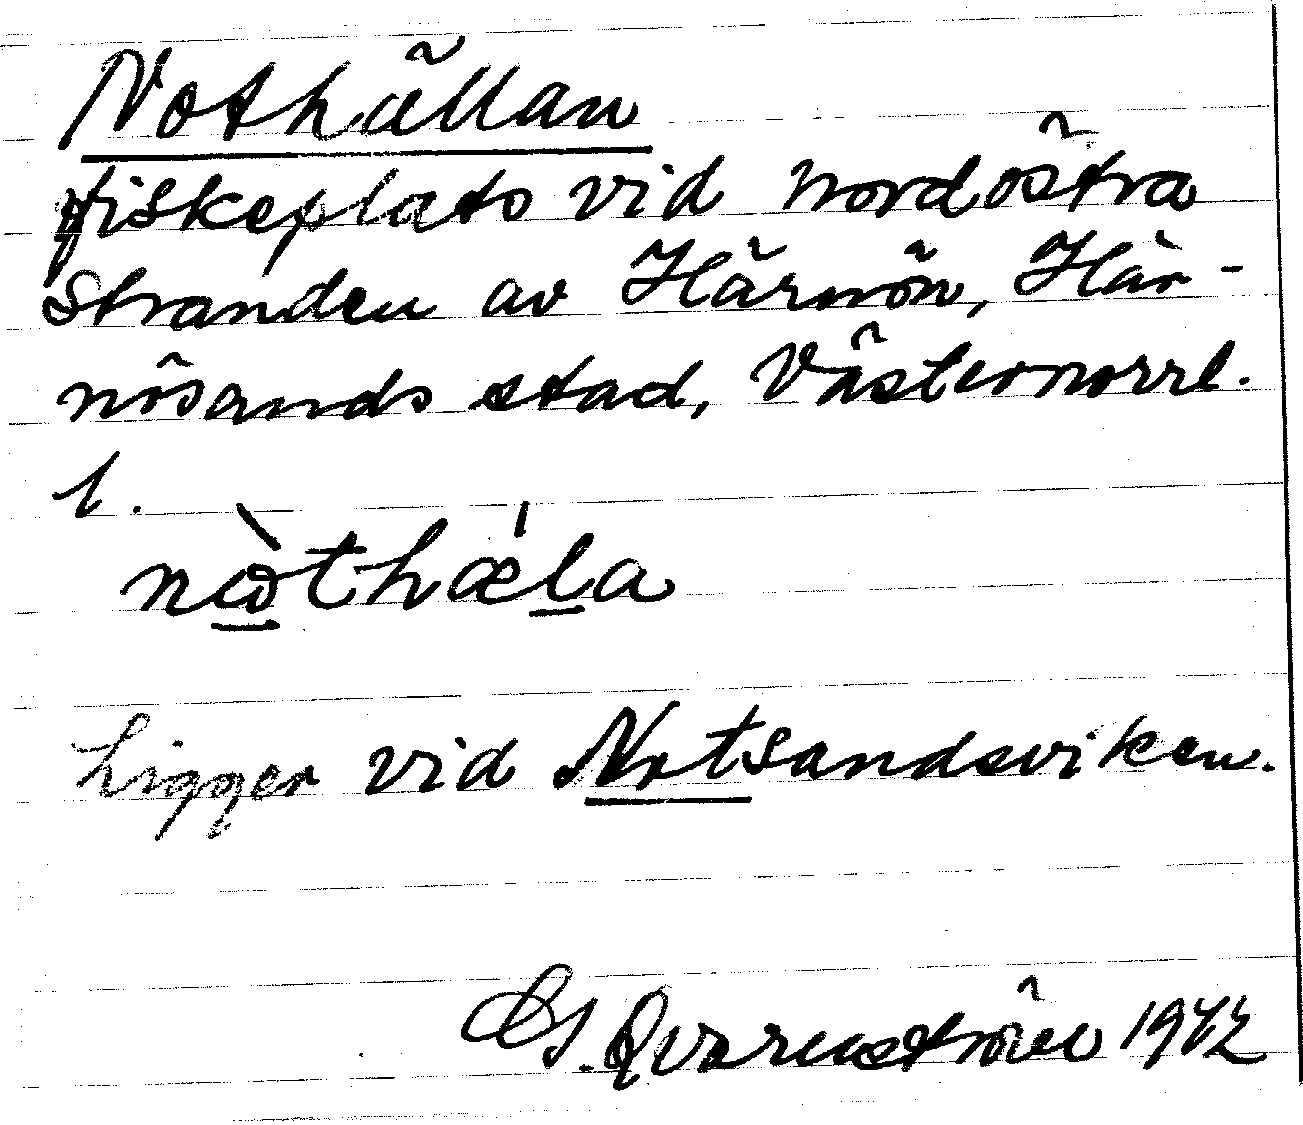 Nothällan
fiskeplats vid nordöstra
stranden av Härnön, Här-
nösands stad, Västernorrl.
l.
nɷ̀thǽla
Ligger vid Notsandsviken.
Qvarnström 1972